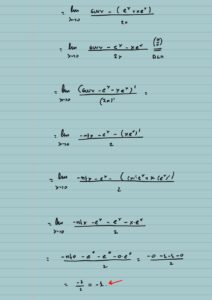 = lim x→0 cosx - (e^x + xe^x) / 2x
= lim x→0 cosx - e^x - xe^x / 2x (0/0)
= lim x→0 (cosx - e^x - xe^x)' / (2x)' =
= lim x→0 -sinx - e^x - (xe^x)' / 2
= lim x→0 -sinx - e^x - ((x)'e^x + x(e^x)') / 2
= lim x→0 -sinx - e^x - e^x - x·e^x / 2
= -sin0 - e^0 - e^0 - 0·e^0 / 2 = -0 -1-1-0 / 2
= -2/2 = -1